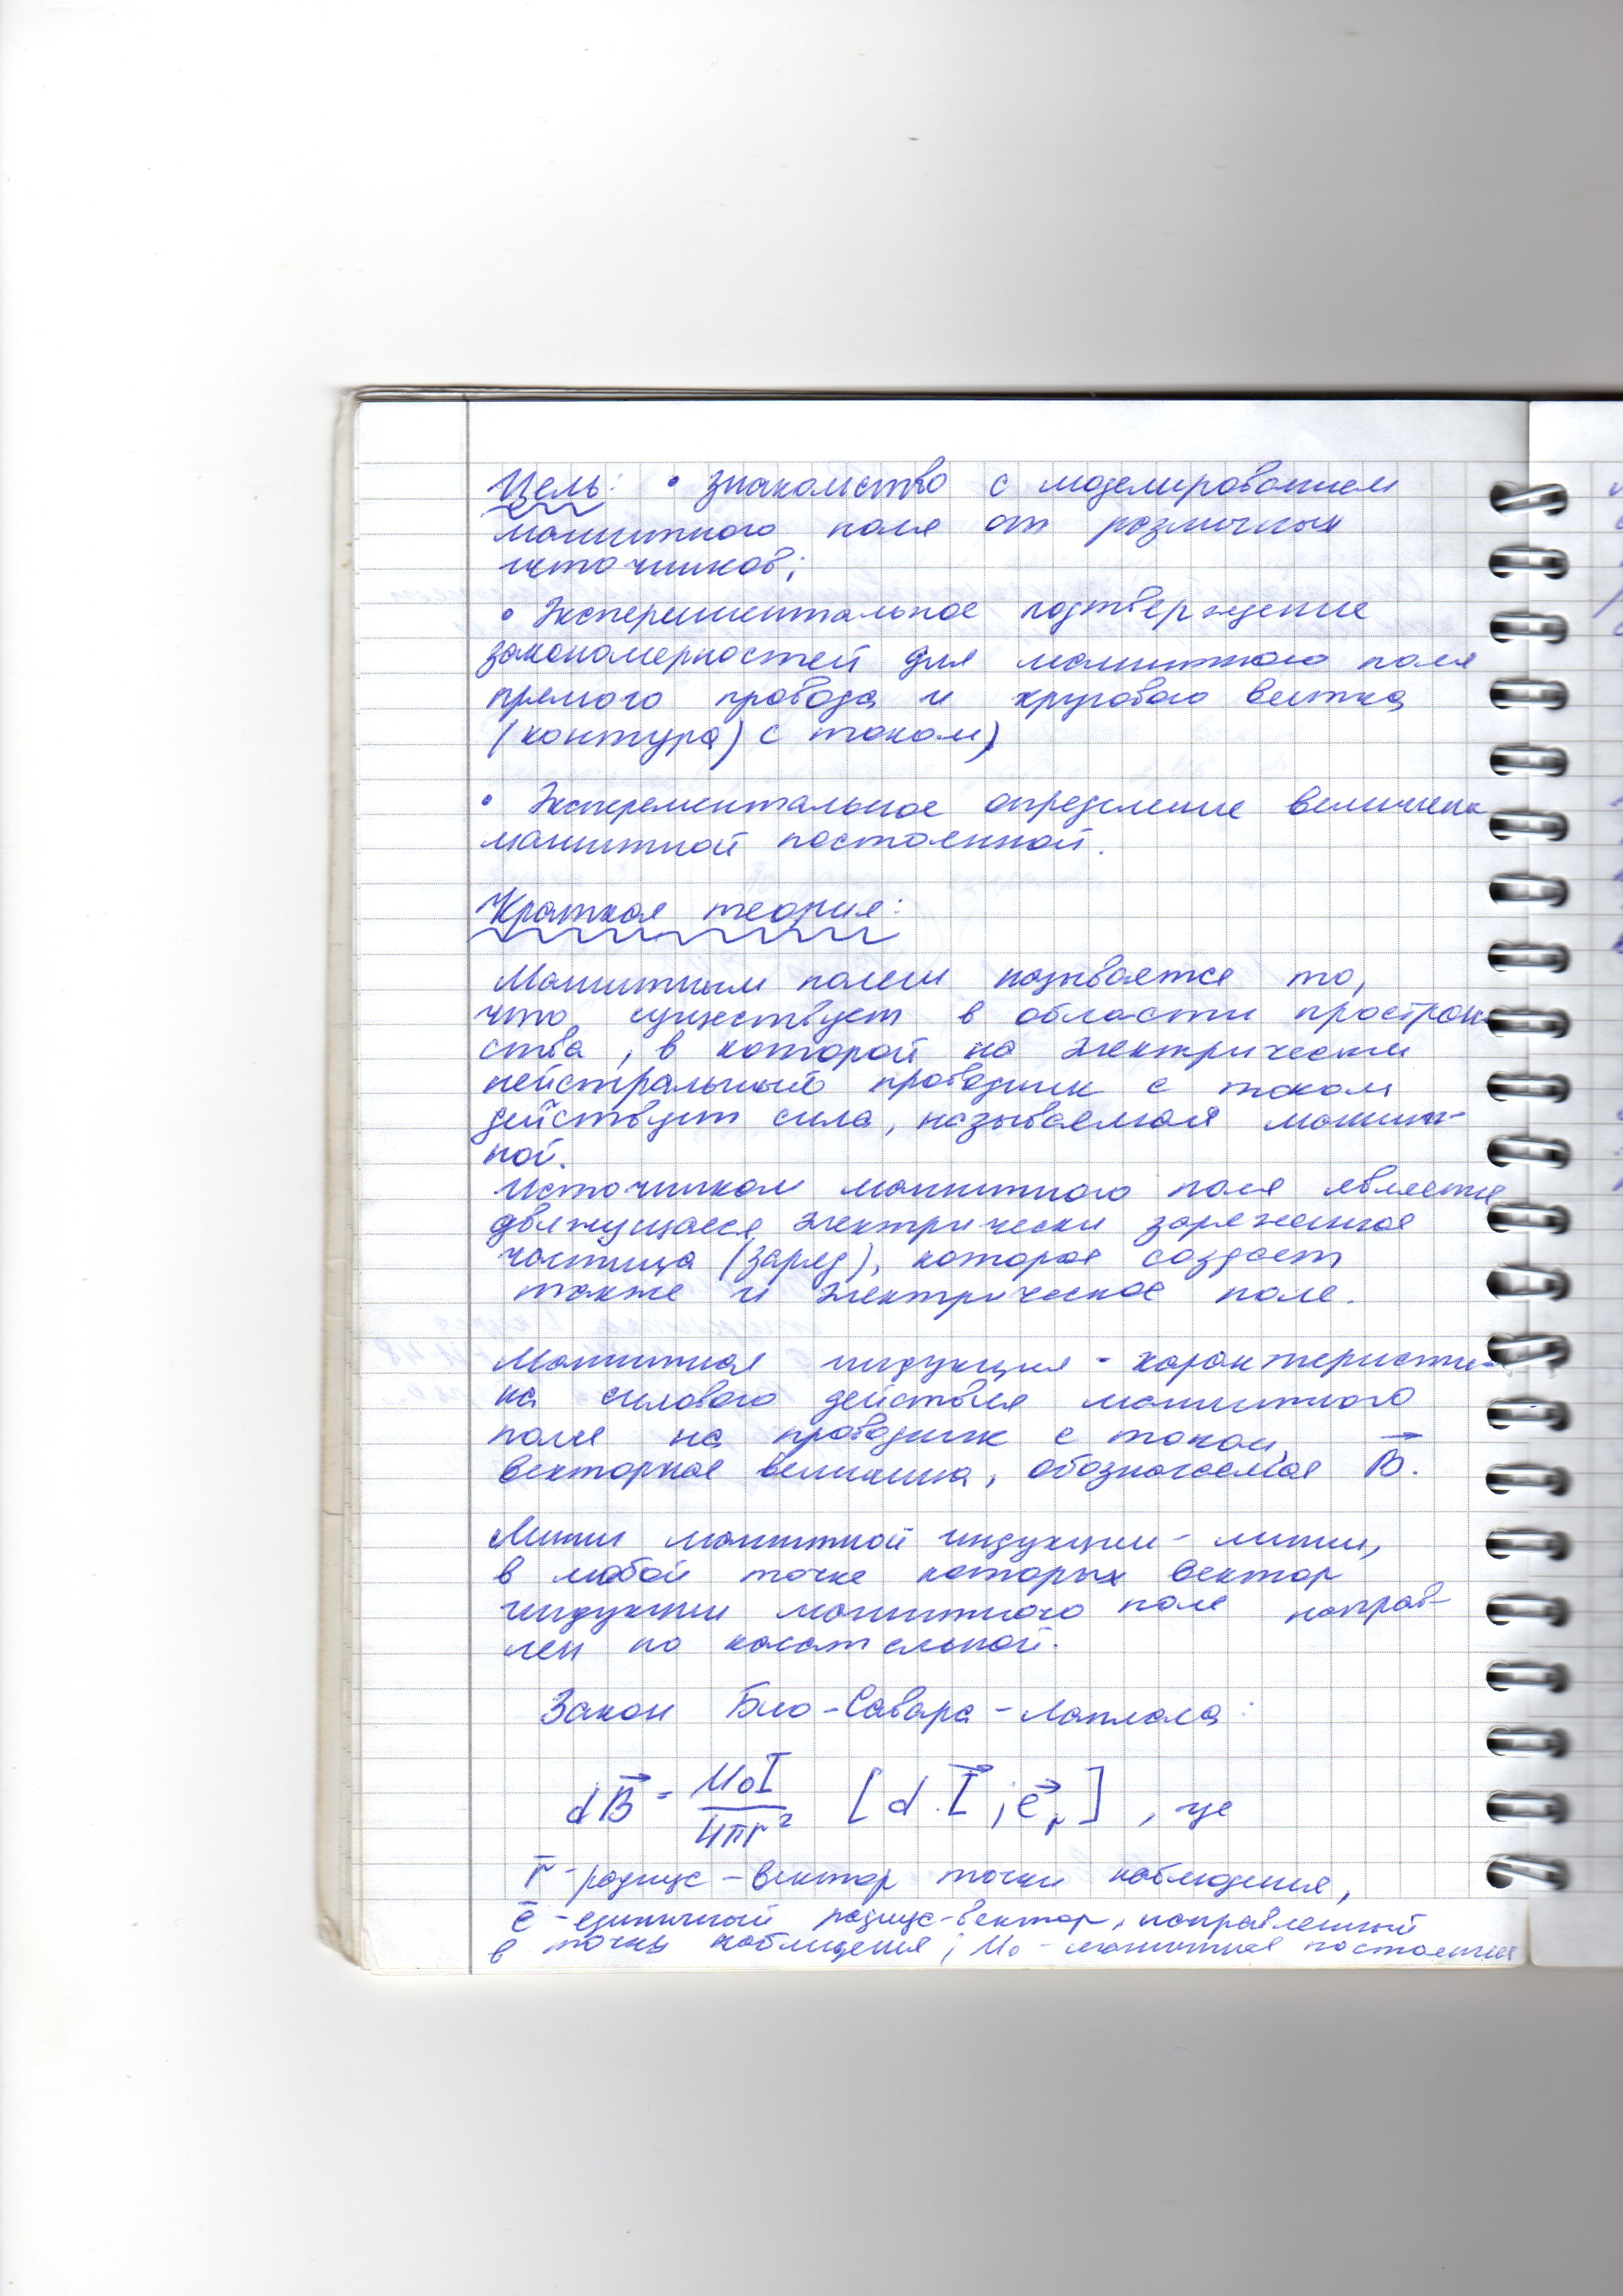 Цель: • знакомство с моделированием
магнитного поля от различных
источников;
• Экспериментальное подтверждение
закономерностей для магнитного поля
прямого провода и кругового витка
(контура) с током)
• Эксперементальное определение величины
магнитной постоянной.
Краткая теория:
Магнитным полем называется то,
что существует в области простран-
ства, в которой на электрически
нейтральный проводник с током
действует сила, называемая магнит-
ной.
Источником магнитного поля является
движущаяся электрически заряженная
частица (заряд), которая создает
также и электрическое поле.
Магнитная индукция - характеристи-
ка силового действия магнитного
поля на проводник с током,
векторная величина, обозначаемая B⃗.
Линии магнитной индукции - линии,
в любой точке которых вектор
индукции магнитного поля направ-
лен по касательной.
Закон Био-Савара-Лапласа:
dB⃗ = μ₀I / 4πr² [d l⃗ ; e⃗ᵣ] , где
r̅ - радиус-вектор точки наблюдения,
e̅ - единичный радиус-вектор, направленный
в точку наблюдения; μ₀ - магнитная постоянная